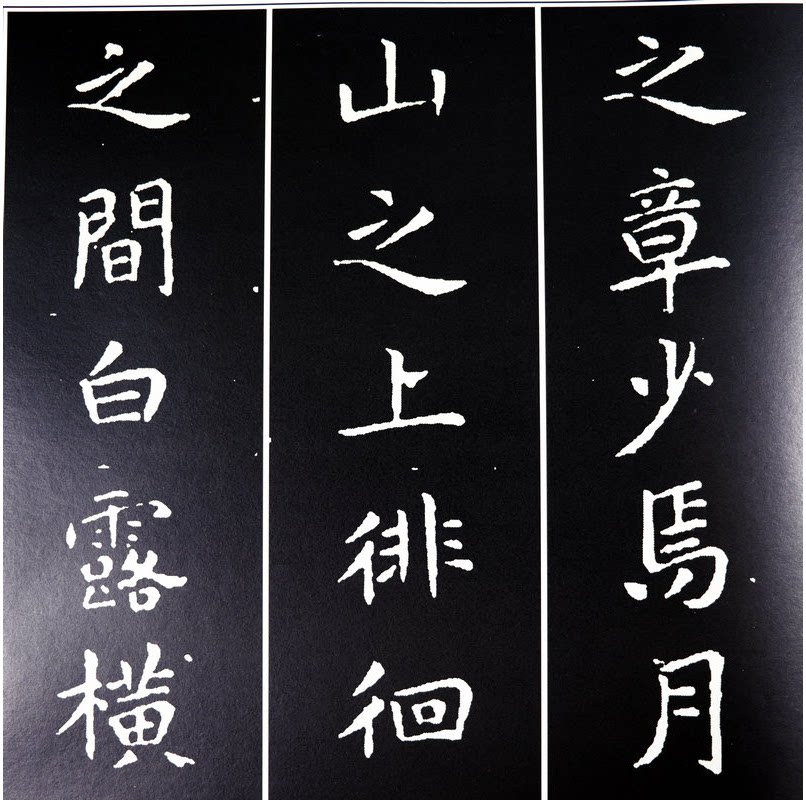 之章少焉月
山之上徘徊
之間白露橫